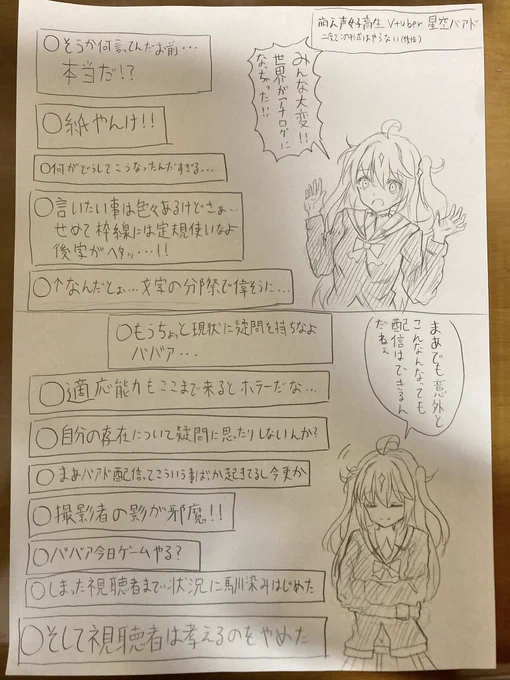 萌え声女子高生Vtuber 星空バアド
二度とこの形式はやらない(戒怡)
みんな大変!!
世界がアナログに
なっちゃった!!
○そうか何言ってんだお前…
本当だ!?
○紙やんけ!!
○何がどうしてこうなったんだすぎる…
○言いたい事は色々あるけどさぁ…
せめて枠線には定規使いなよ
後字がヘタッ…!!
○↑なんだとぉ…文字の分際で偉そうに…
○もうちょっと現状に疑問を持ちなよ
ババァ…
まあでも意外と
こんなんなっても
配信はできるん
だねぇ
○適応能力もここまで来るとホラーだな…
○自分の存在について疑問に思ったりしないんか?
○まあバアド配信ってこういう事ばっか起きてるし今更か
○撮影者の影が邪魔!!
○ババア今日ゲームやる?
○しまった視聴者まで状況に馴染みはじめた
○そして視聴者は考えるのをやめた